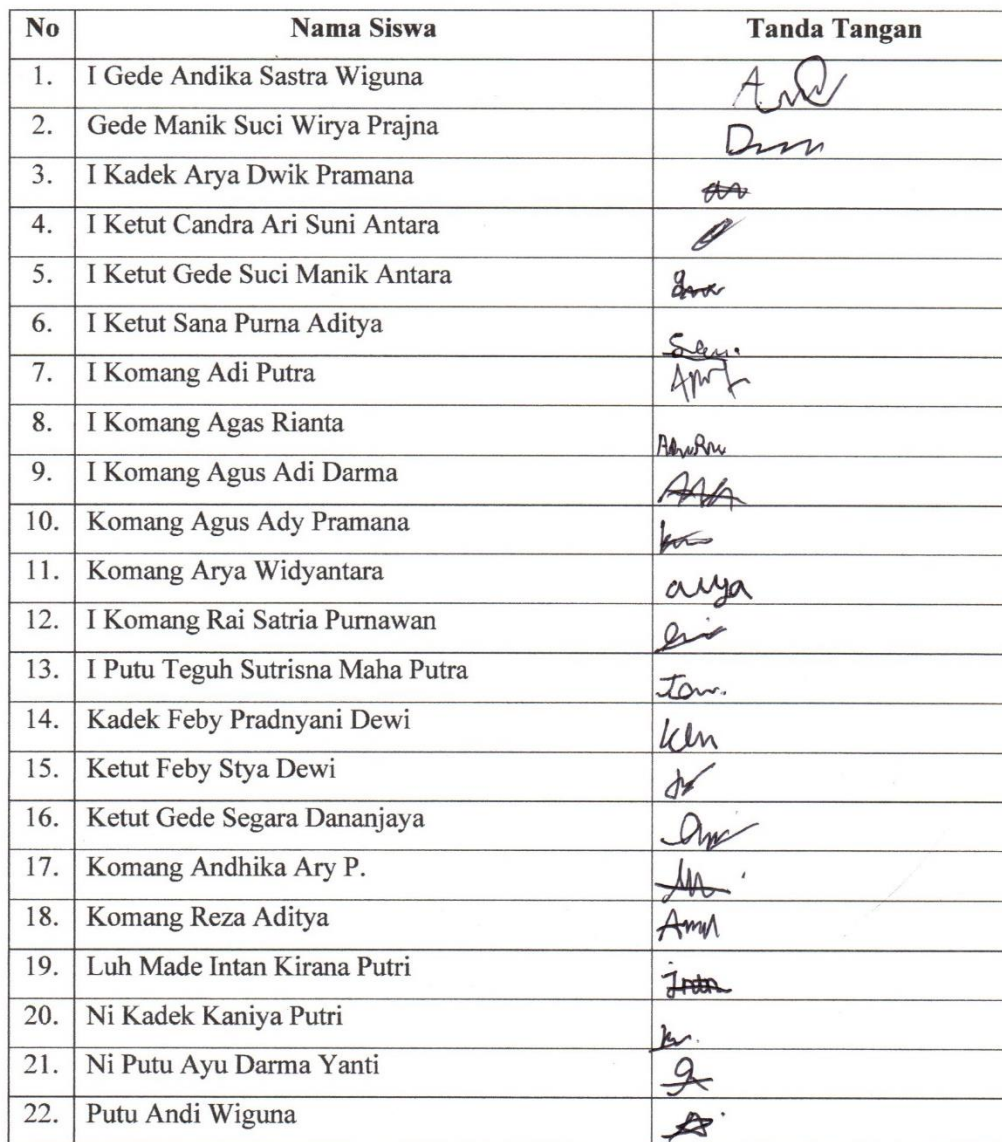 No Nama Siswa Tanda Tangan
1. I Gede Andika Sastra Wiguna
2. Gede Manik Suci Wirya Prajna
3. I Kadek Arya Dwik Pramana
4. I Ketut Candra Ari Suni Antara
5. I Ketut Gede Suci Manik Antara
6. I Ketut Sana Purna Aditya
7. I Komang Adi Putra
8. I Komang Agas Rianta
9. I Komang Agus Adi Darma
10. Komang Agus Ady Pramana
11. Komang Arya Widyantara arya
12. I Komang Rai Satria Purnawan
13. I Putu Teguh Sutrisna Maha Putra
14. Kadek Feby Pradnyani Dewi
15. Ketut Feby Stya Dewi
16. Ketut Gede Segara Dananjaya
17. Komang Andhika Ary P.
18. Komang Reza Aditya
19. Luh Made Intan Kirana Putri
20. Ni Kadek Kaniya Putri
21. Ni Putu Ayu Darma Yanti
22. Putu Andi Wiguna